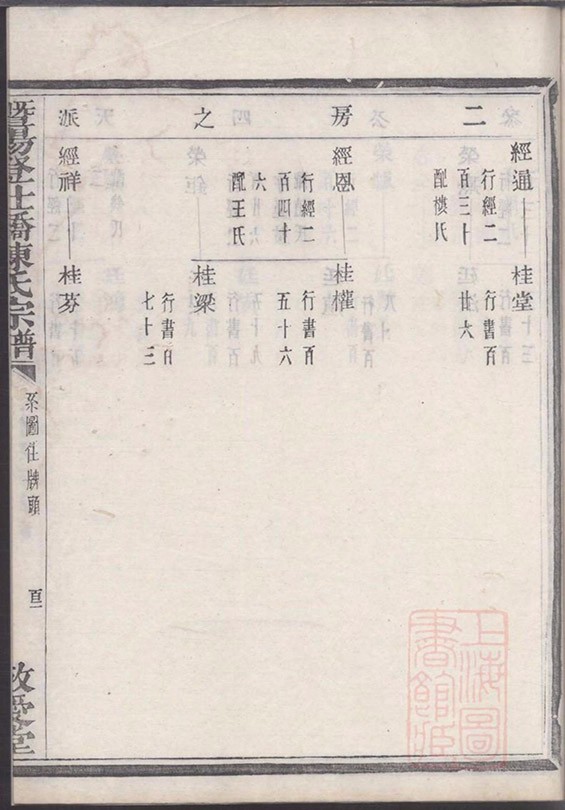 二房之派
經通
行經二
百三十
配樓氏
桂堂
行書百
廿六
經恩
行經二
百四十
六
配王氏
桂權
行書百
五十六
桂梁
行書百
七十三
經祥
桂芬
暨陽登仕橋陳氏宗譜
系圖仕牌頭
百一
敬愛堂
上海圖
書館藏